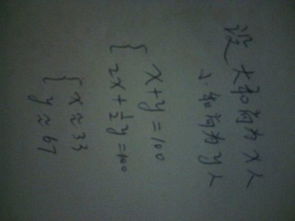 设大和尚为x人
小和尚为y人
{ x+y=100
2x+½y=100
{ x≈33
y≈67